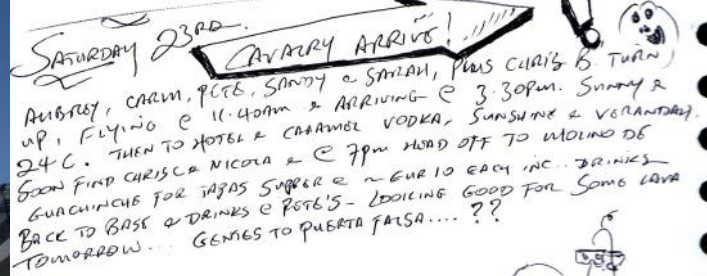 SATURDAY 23RD.
CAVALRY ARRIVE!
AUBREY, CARM, PETE, SANDY & SARAH, PLUS CHRIS B. TURN
UP, FLYING @ 11.40AM & ARRIVING @ 3.30PM. SUNNY &
24°C. THEN TO HOTEL & CARAMEL VODKA, SUNSHINE & VERANDAH.
SOON FIND CHRIS C & NICOLA & @ 7pm HEAD OFF TO MOLINO DE
GUACHINCHE FOR TAPAS SUPPER @ ~ EUR 10 EACH INC. DRINKS
BACK TO BASE & DRINKS @ PETE'S - LOOKING GOOD FOR SOME LAVA
TOMORROW... GENIES TO PUERTA FALSA.... ??